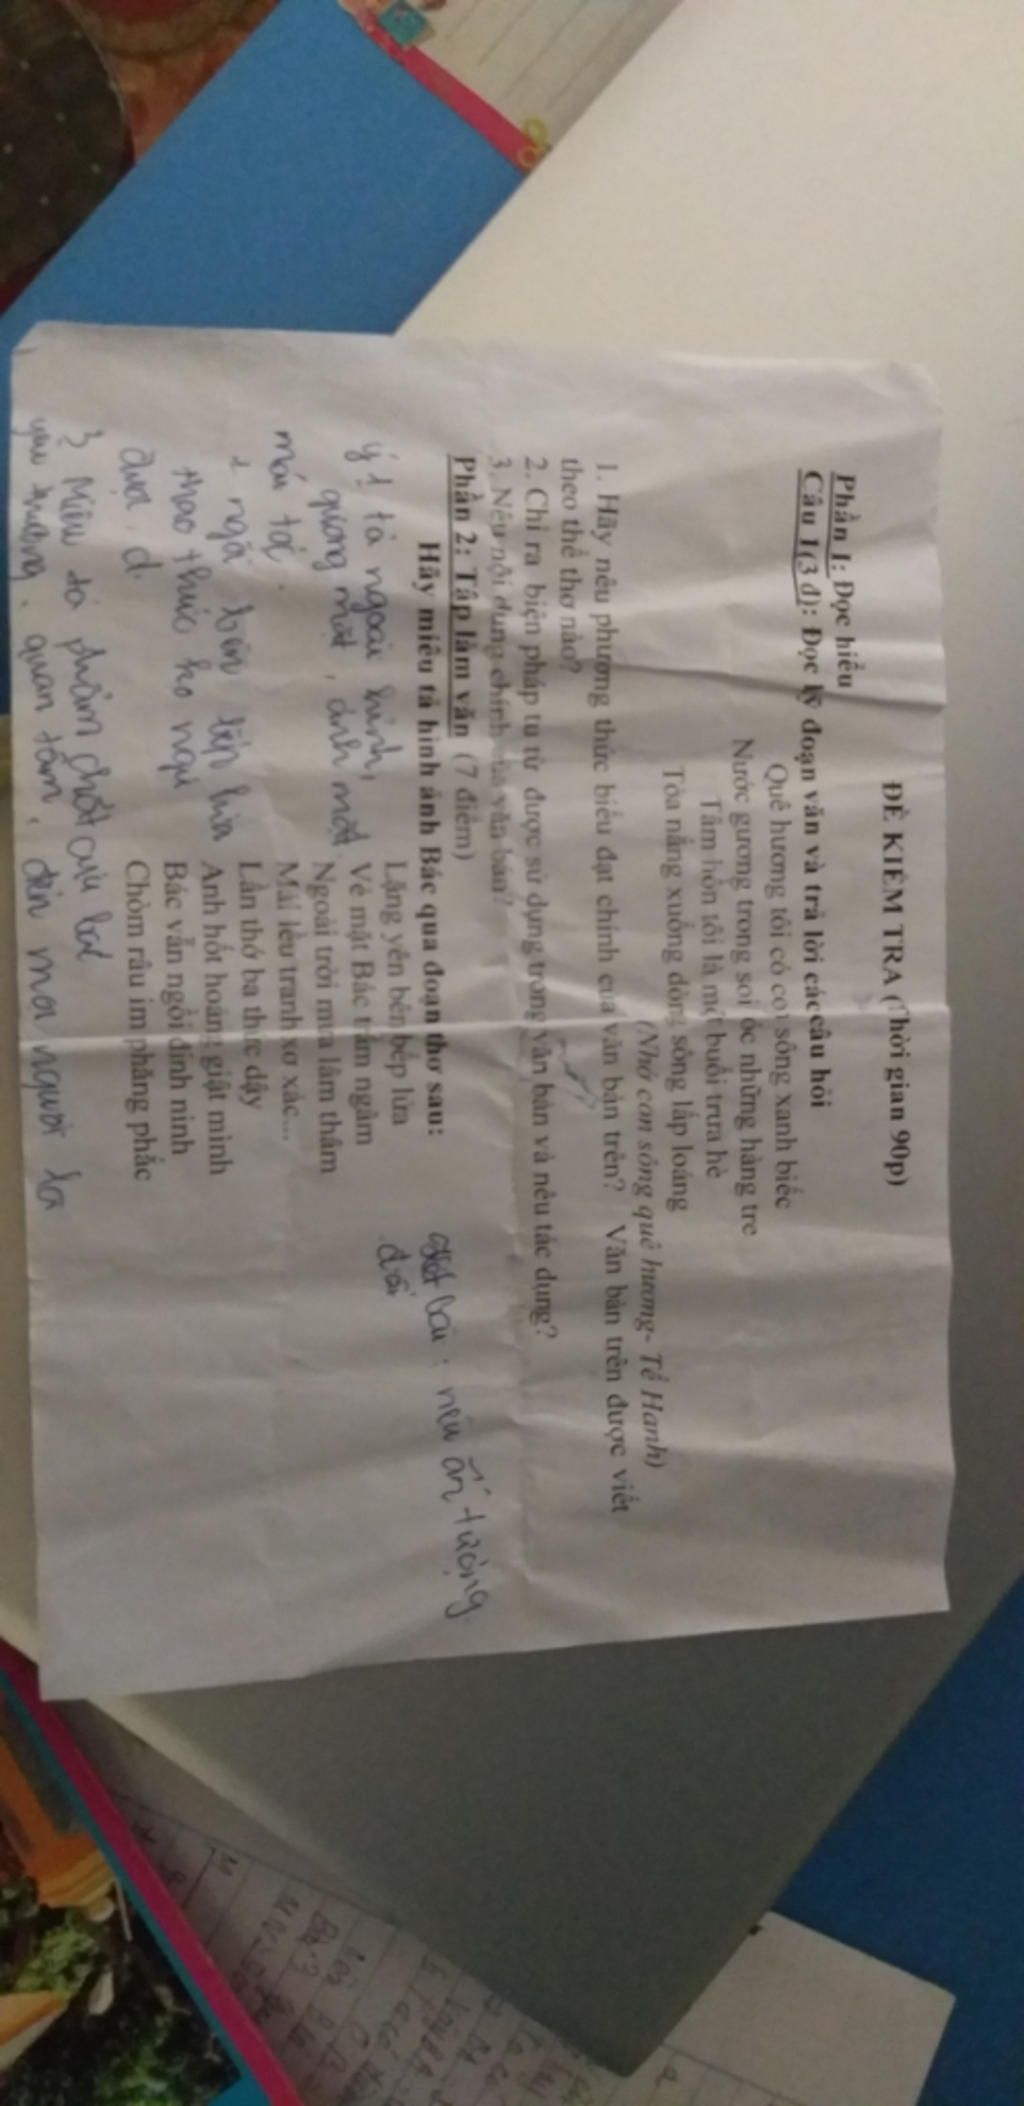 ĐỀ KIỂM TRA (Thời gian 90p)
Phần I: Đọc hiểu
Câu 1(3 đ): Đọc kỹ đoạn văn và trả lời các câu hỏi
Quê hương tôi có con sông xanh biếc
Nước gương trong soi tóc những hàng tre
Tâm hồn tôi là một buổi trưa hè
Tỏa nắng xuống dòng sông lấp loáng
(Nhớ con sông quê hương- Tế Hanh)
1. Hãy nêu phương thức biểu đạt chính của văn bản trên? Văn bản trên được viết
theo thể thơ nào?
2. Chỉ ra biện pháp tu từ được sử dụng trong văn bản và nêu tác dụng?
3. Nêu nội dung chính của văn bản?
Phần 2: Tập làm văn (7 điểm)
Hãy miêu tả hình ảnh Bác qua đoạn thơ sau:
Lặng yên bên bếp lửa
Vẻ mặt Bác trầm ngâm
Ngoài trời mưa lâm thâm
Mái lều tranh xơ xác...
Lần thứ ba thức dậy
Anh hốt hoảng giật mình
Bác vẫn ngồi đinh ninh
Chòm râu im phăng phắc
bài : nêu ấn tượng
ý 1 tả ngoại hình,
gương mặt, ánh mắt.
mái tóc.
ngồi bên bếp lửa
thao thức ko ngủ
3 Miêu tả phẩm chất của bác
yêu thương, quan tâm, đến mọi người